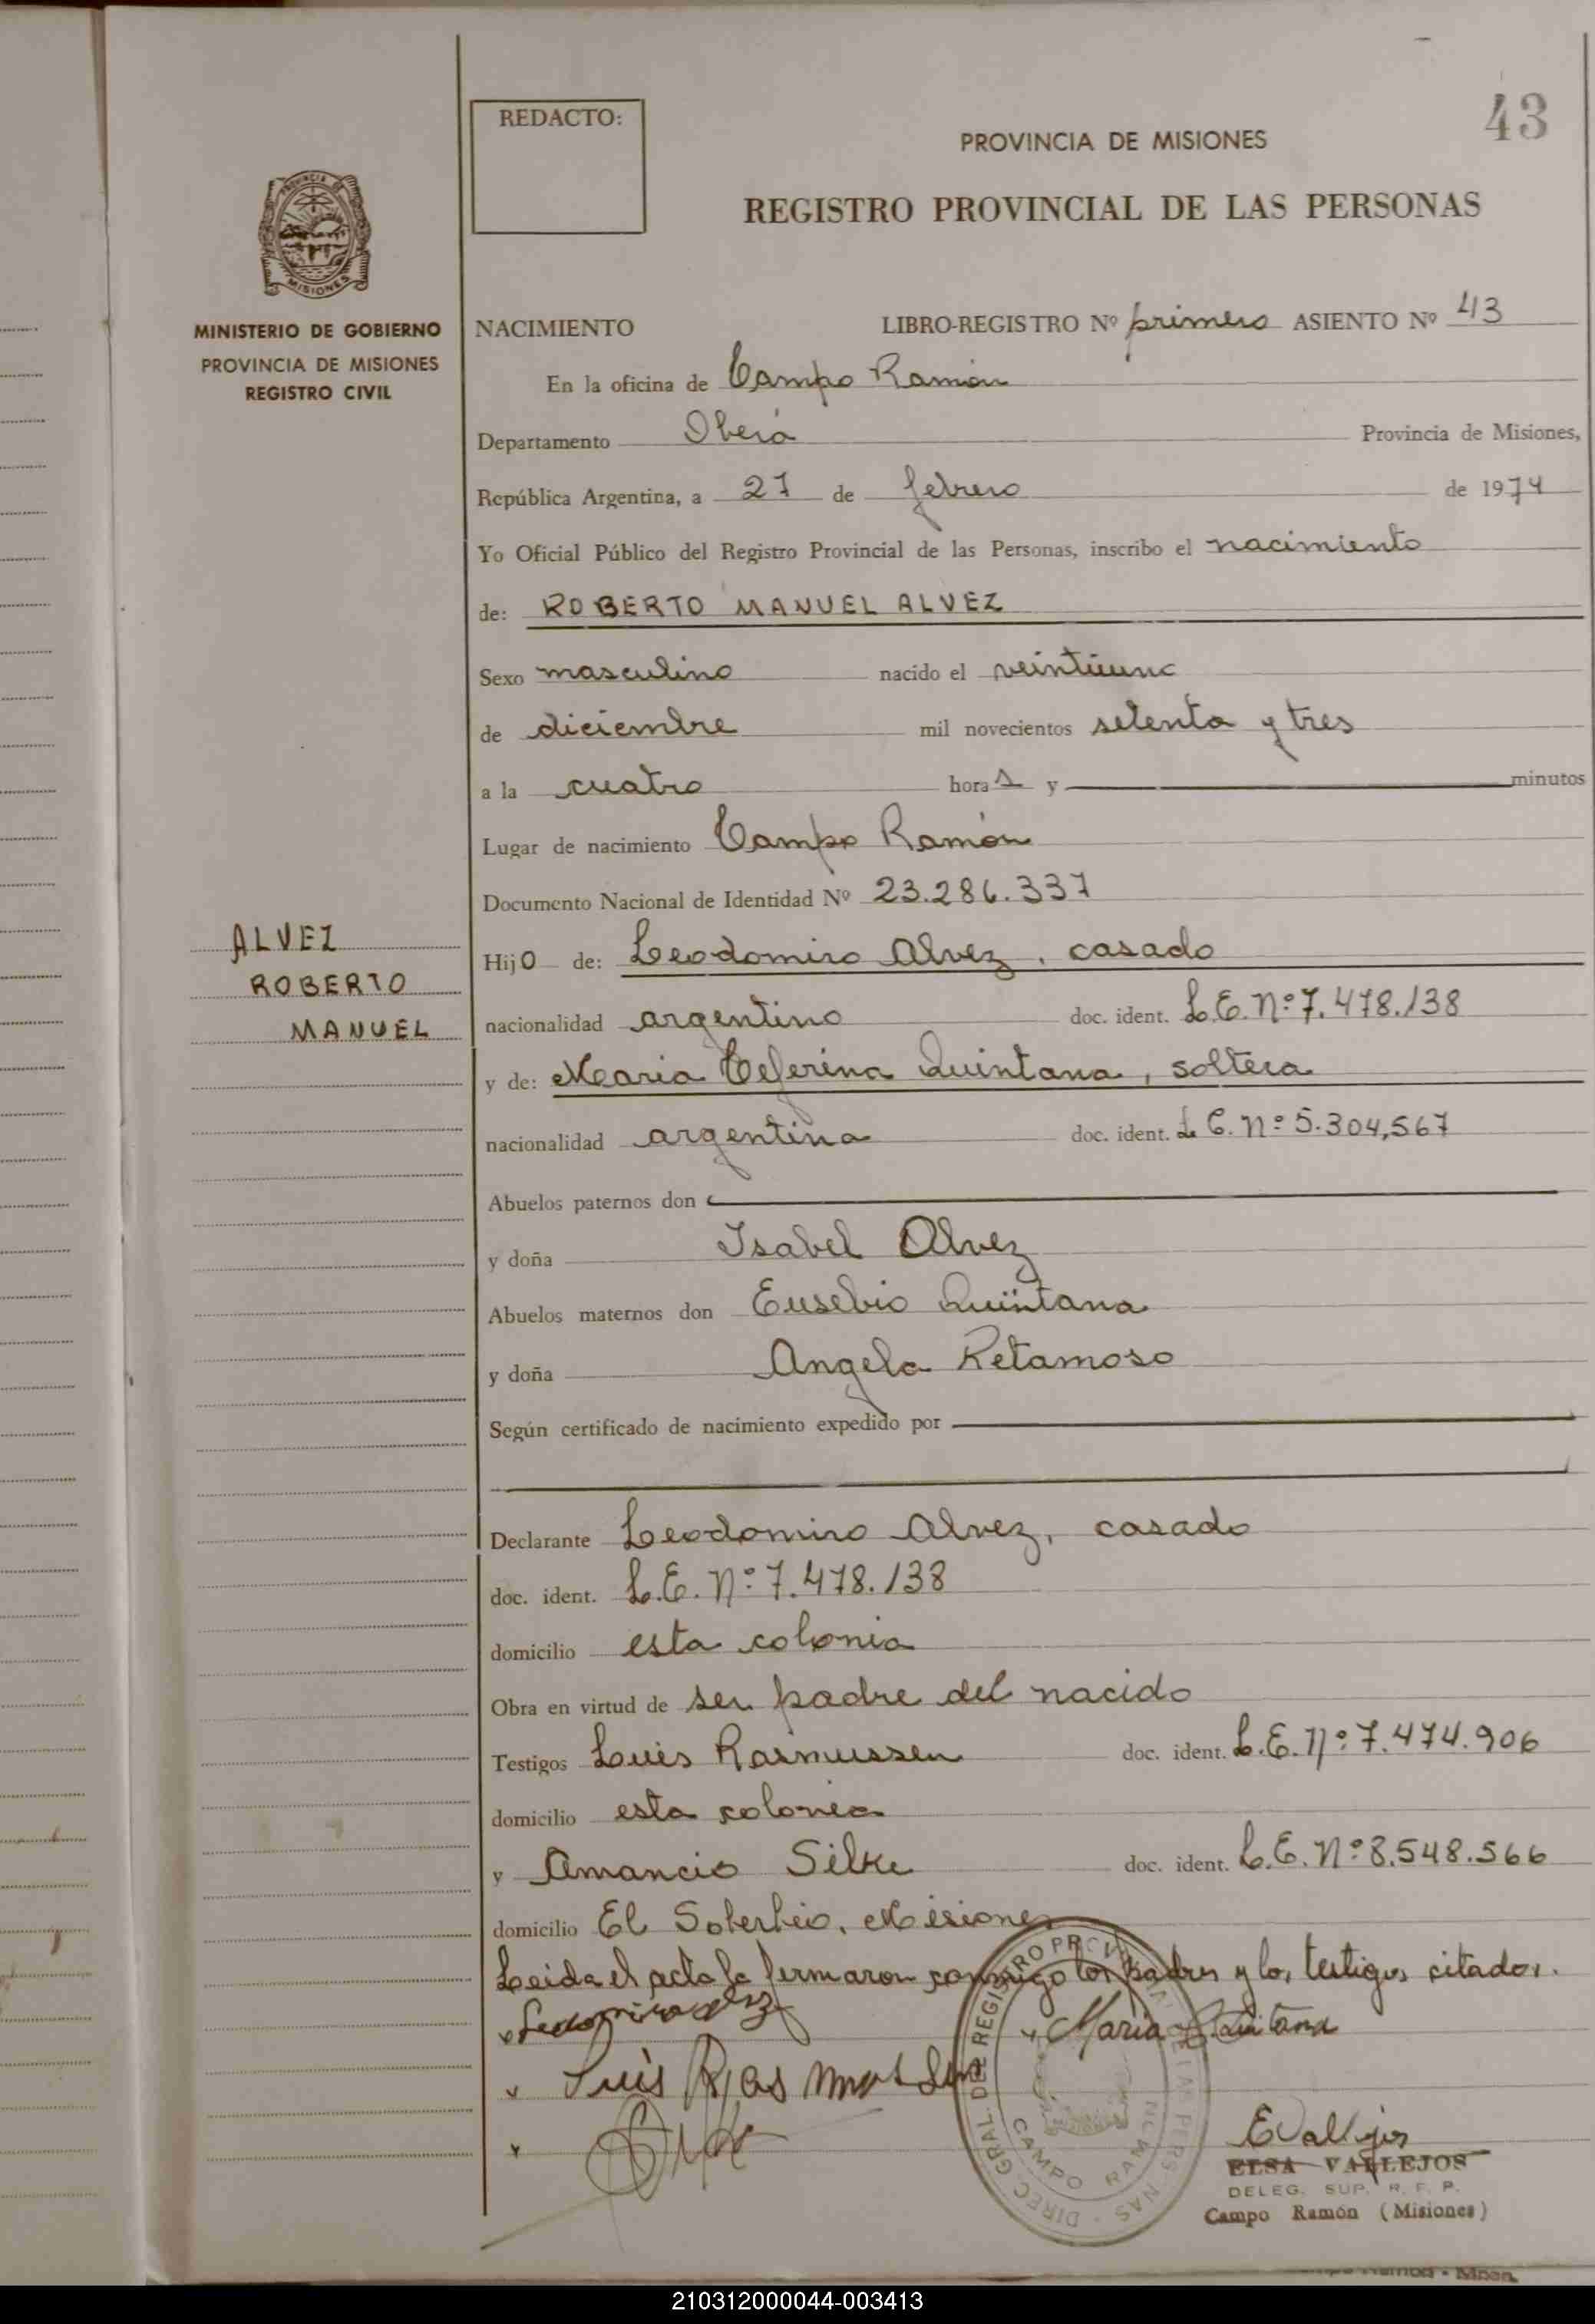 43
REDACTO:
PROVINCIA DE MISIONES
REGISTRO PROVINCIAL DE LAS PERSONAS
PROVINCIA DE
MISIONES
MINISTERIO DE GOBIERNO
PROVINCIA DE MISIONES
REGISTRO CIVIL
NACIMIENTO LIBRO-REGISTRO Nº primero ASIENTO Nº 43
En la oficina de Campo Ramón
Departamento Oberá Provincia de Misiones,
República Argentina, a 27 de febrero de 1974
Yo Oficial Público del Registro Provincial de las Personas, inscribo el nacimiento
de: ROBERTO MANUEL ALVEZ
Sexo masculino nacido el veintiuno
de diciembre mil novecientos setenta y tres
a la cuatro hora s y minutos
Lugar de nacimiento Campo Ramón
Documento Nacional de Identidad Nº 23.286.337
ALVEZ
ROBERTO
MANUEL
Hijo de: Leodomiro Alvez, casado
nacionalidad argentino doc. ident. L.E. Nº 7.478.138
y de: Maria Ceferina Quintana, soltera
nacionalidad argentina doc. ident. L C. Nº 5.304,567
Abuelos paternos don
y doña Isabel Alvez
Abuelos maternos don Eusebio Quintana
y doña Angela Retamoso
Según certificado de nacimiento expedido por
Declarante Leodomiro Alvez, casado
doc. ident. L.E. Nº 7.478.138
domicilio esta colonia
Obra en virtud de ser padre del nacido
Testigos Luis Rasmussen doc. ident. L.E. Nº 7.474.906
domicilio esta colonia
y Amancio Silke doc. ident. L.E. Nº 8.548.566
domicilio El Soberbio, Misiones
Leida el acta la firmaron conmigo los padres y los testigos citados.
Leodomiro Alvez
Maria Quintana
Luis Rasmussen
DIREC. GRAL. DEL REGISTRO PROVINCIAL DE LAS PERSONAS
CAMPO RAMON
EVallejos
ELSA VALLEJOS
DELEG. SUP. R. P. P.
Campo Ramón (Misiones)
210312000044-003413